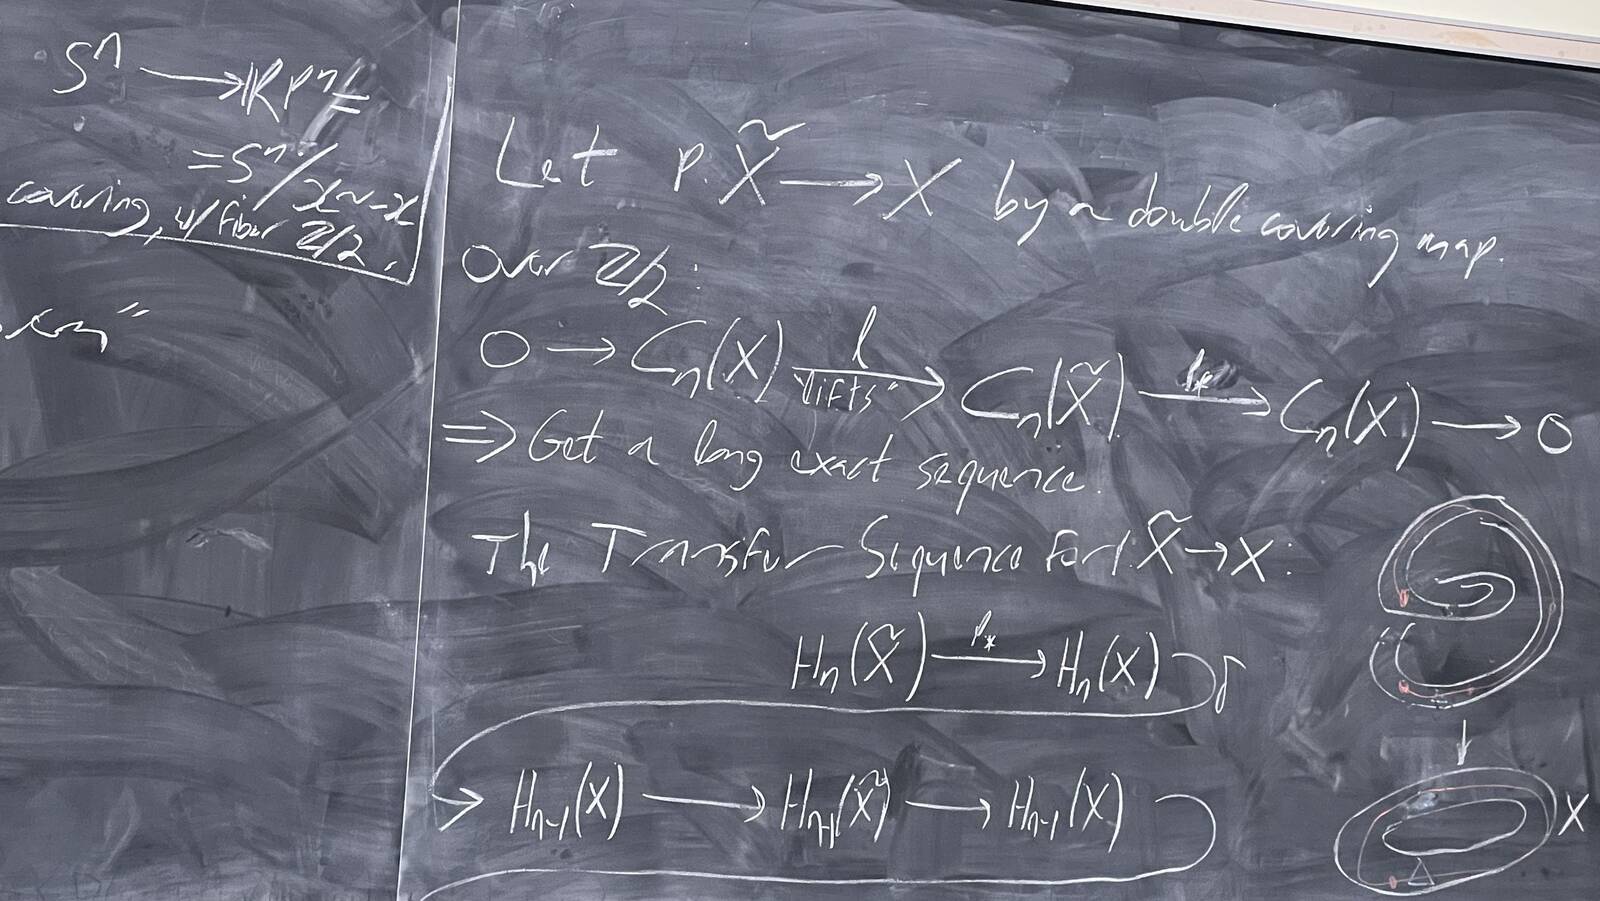 Sⁿ → ℝPⁿ =
= Sⁿ/x~-x
covering, w/ fiber ℤ/2.
Let p: X̃ → X by a double covering map.
Over ℤ/2:
0 → Cₙ(X) →^l "lifts" Cₙ(X̃) →^{p_*} Cₙ(X) → 0
⇒ Get a long exact sequence.
The Transfer Sequence for p: X̃ → X:
Hₙ(X̃) →^{p_*} Hₙ(X) δ
→ Hₙ₋₁(X) → Hₙ₋₁(X̃) → Hₙ₋₁(X)
X
Δ